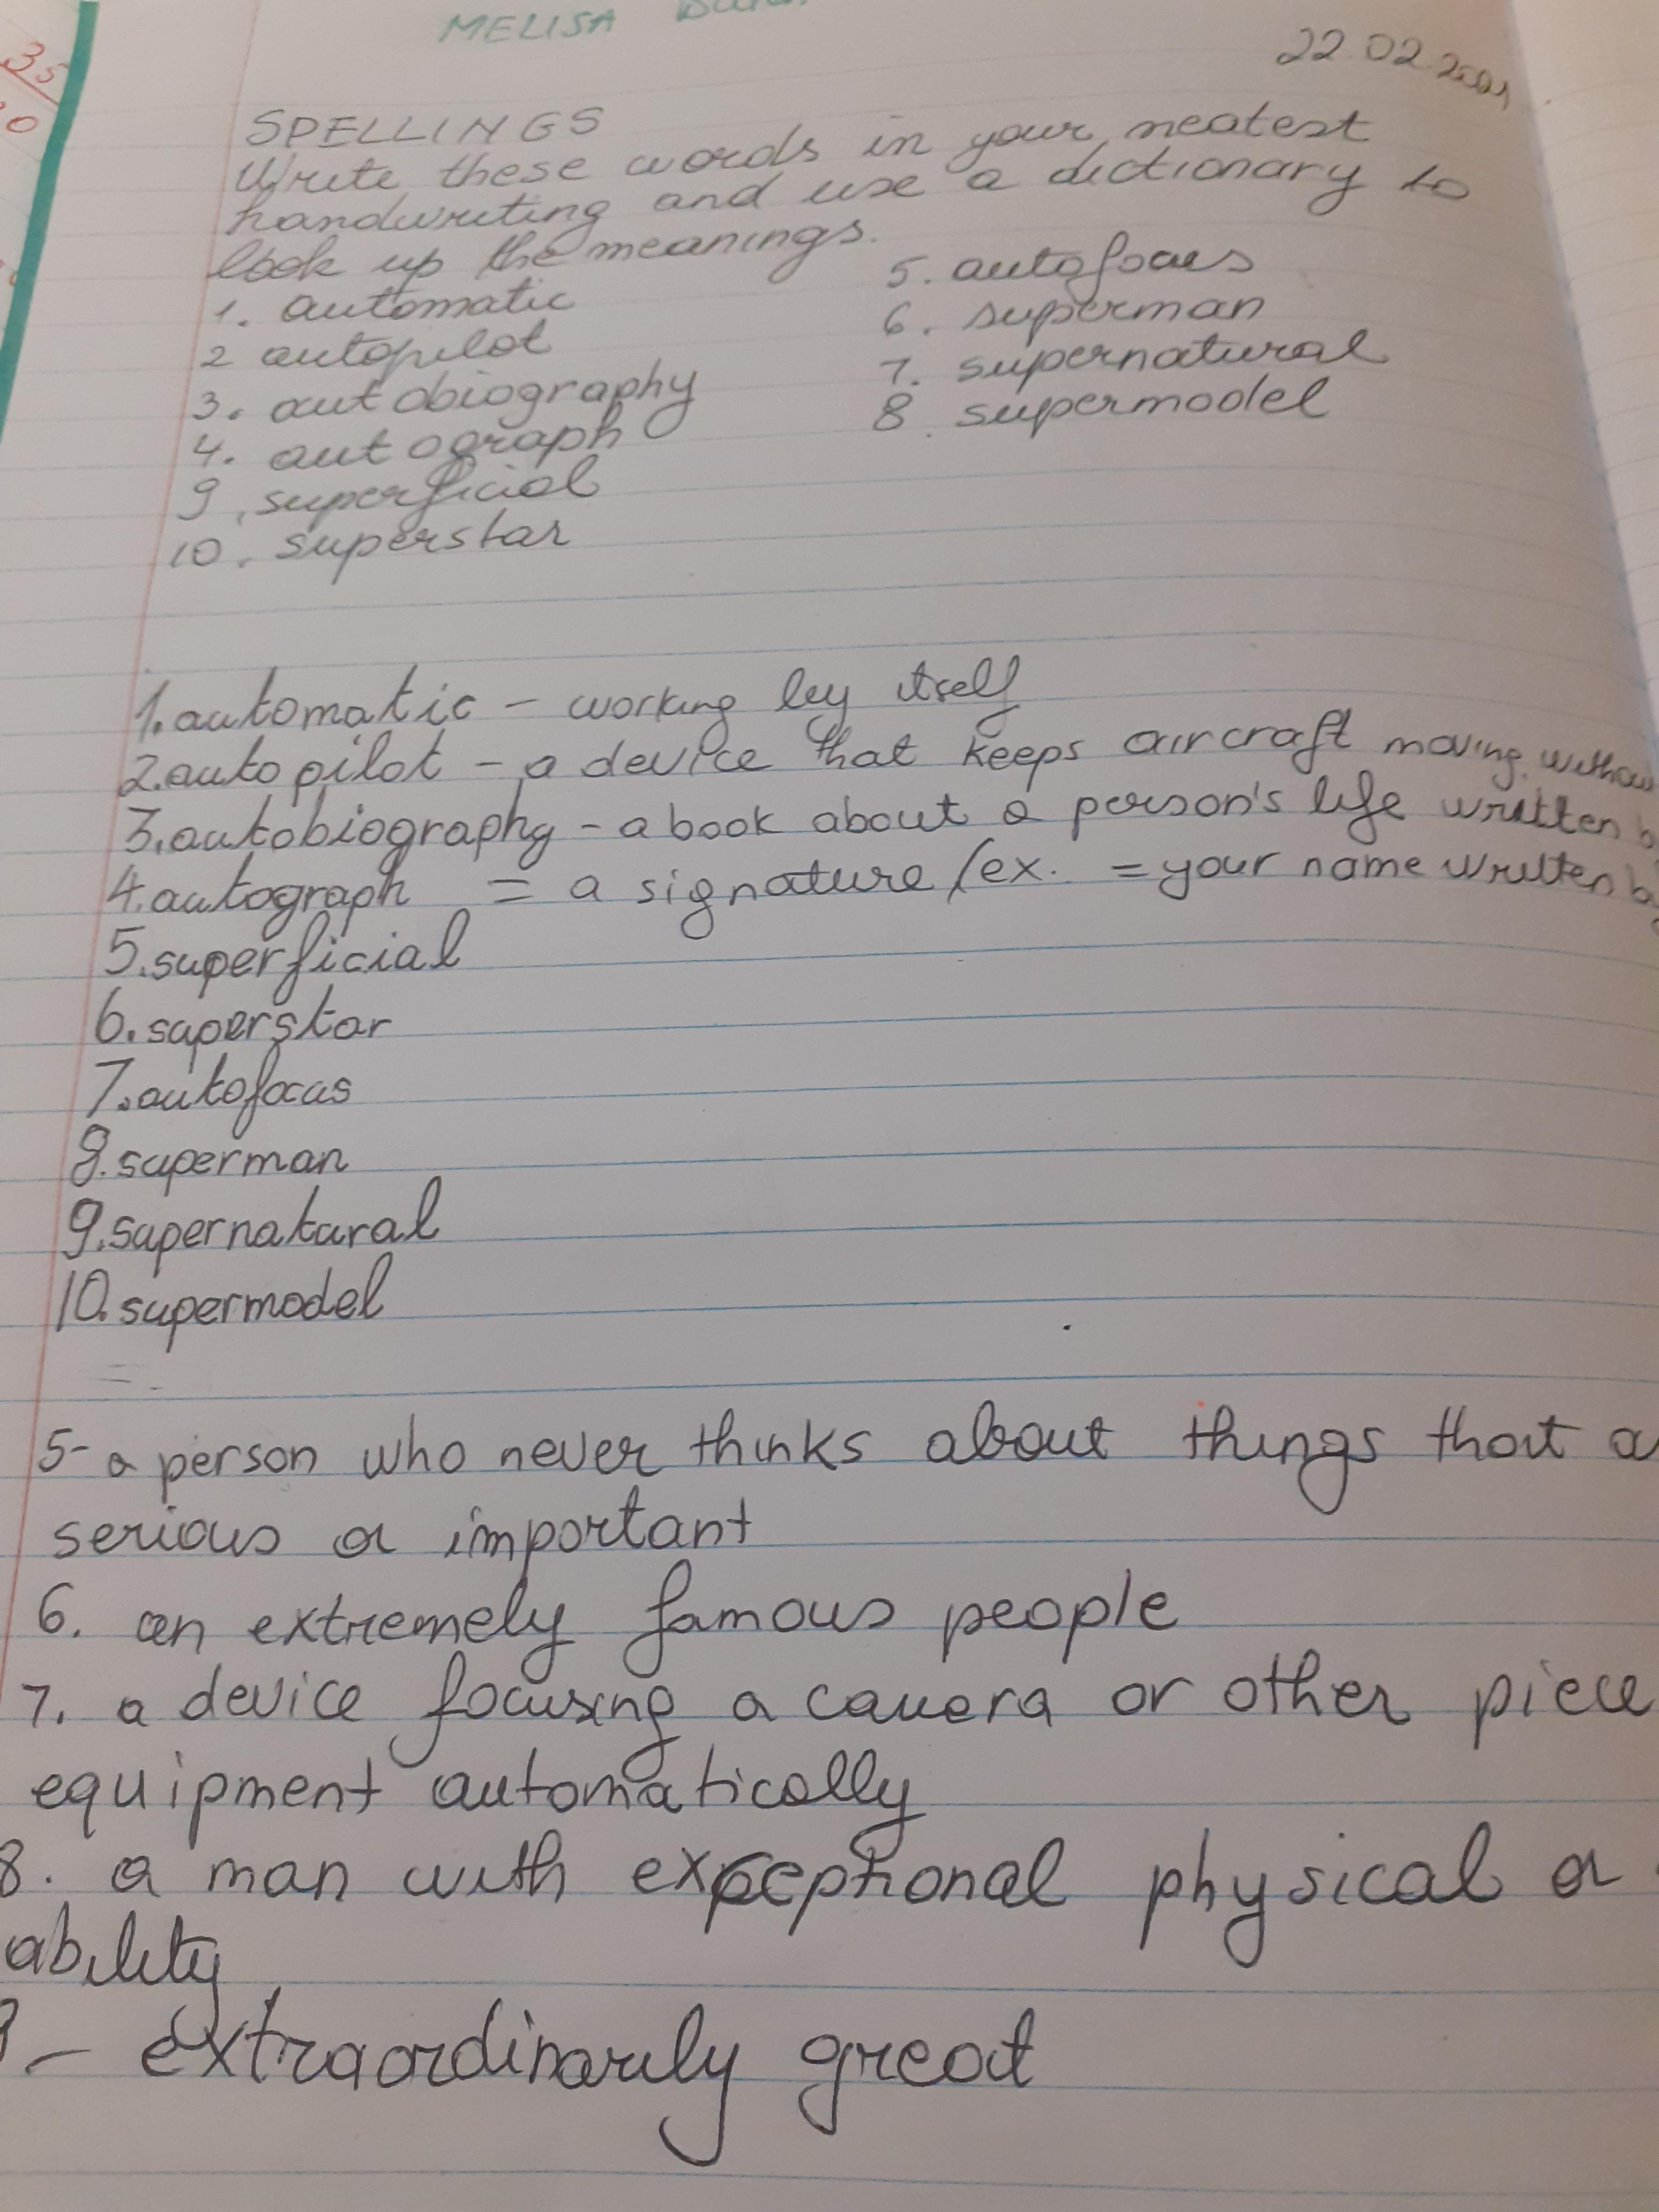 MELISA
22.02.2021
SPELLINGS
Write these words in your neatest
handwriting and use a dictionary to
look up the meanings.
1. automatic
2 autopilot
3. autobiography
4. autograph
9. superficial
10. superstar
5. autofocus
6. superman
7. supernatural
8. supermodel
1. automatic - working by itself
2. autopilot - a device that keeps aircraft moving
3. autobiography - a book about a person's life written
4. autograph = a signature /ex. = your name written
5. superficial
6. superstar
7. autofocus
8. superman
9. supernatural
10. supermodel
5- a person who never thinks about things that
serious or important
6. an extremely famous people
7. a device focusing a camera or other piece
equipment automatically
8. a man with exceptional physical or
ability
- extraordinarily great